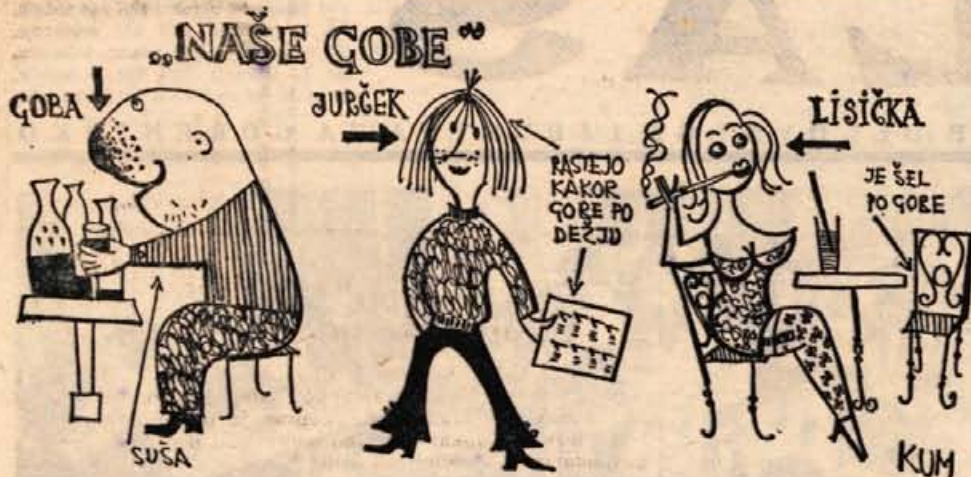 „NAŠE GOBE“
GOBA
SUŠA
JURČEK
RASTEJO
KAKOR
GOBE PO
DEŽJU
LISIČKA
JE ŠEL
PO GOBE
KUM